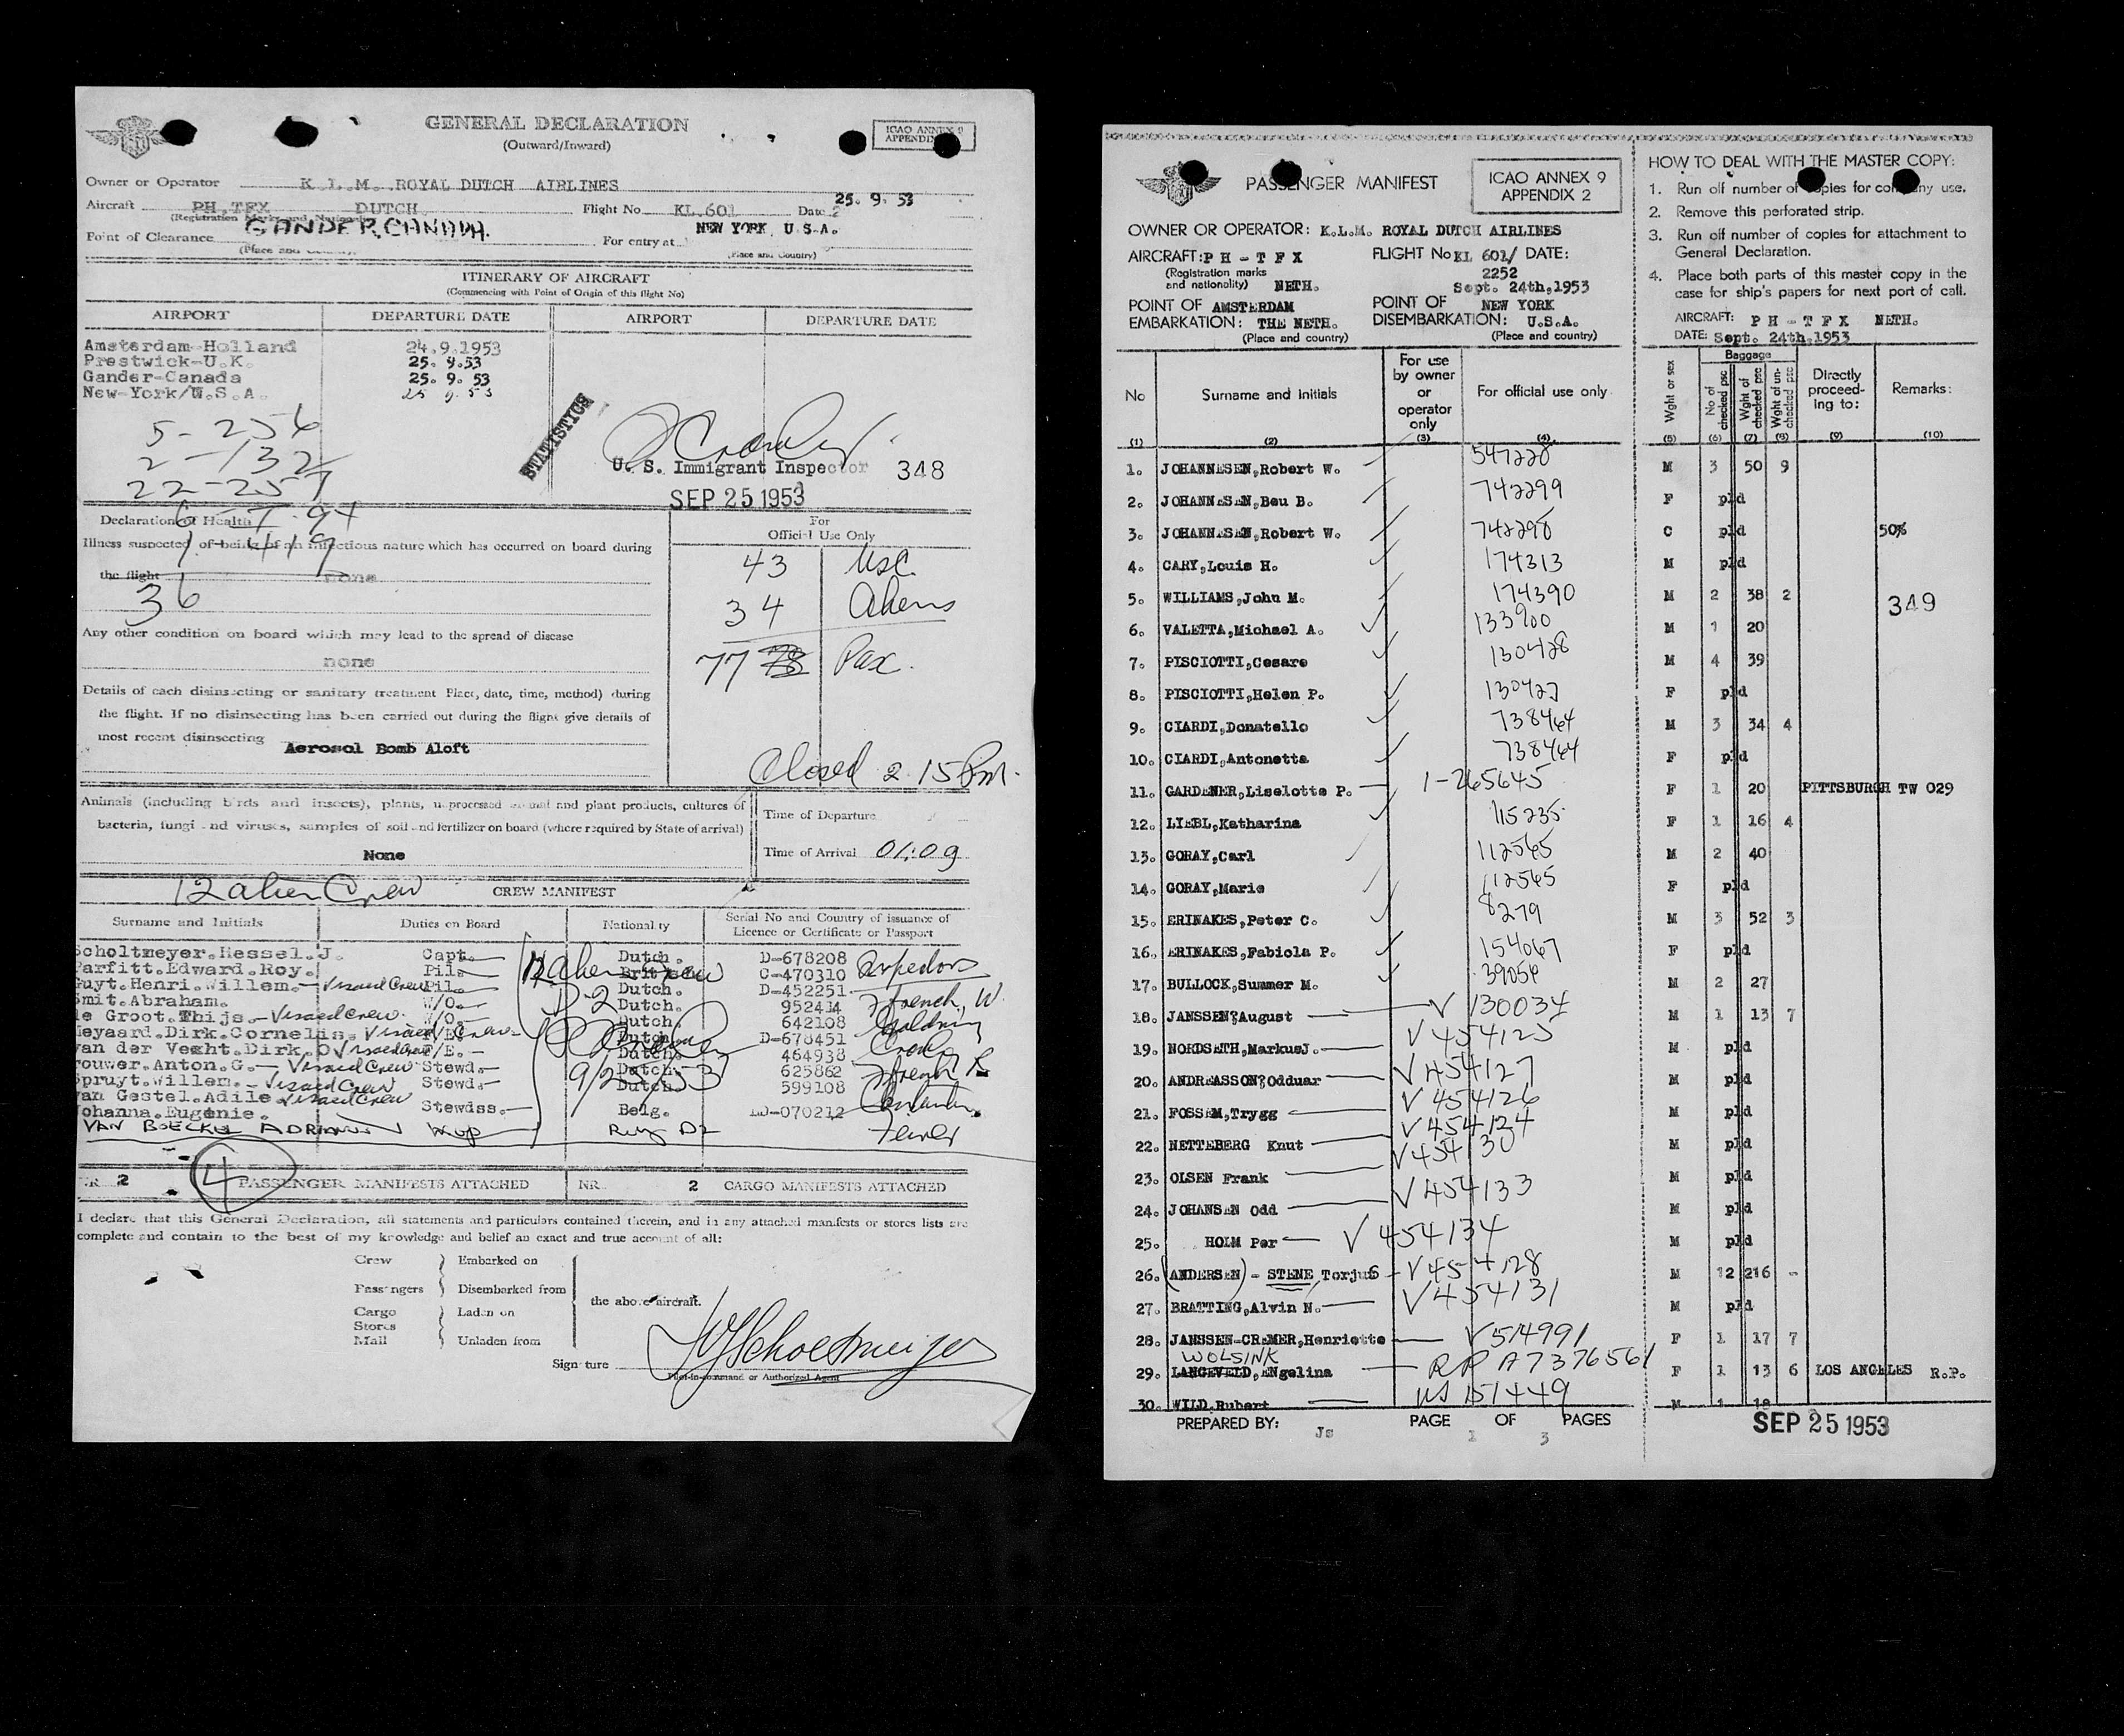 GENERAL DECLARATION
(Outward/Inward)
ICAO ANNEX 9
Owner or Operator K.L.M. ROYAL DUTCH AIRLINES
Aircraft PH.TFX DUTCH. Flight No KL.601 Date 25. 9. 53
(Registration Marks and Nationality)
Point of Clearance GANDER, CANADA. For entry at NEW YORK, U.S.A.
(Place and Country) (Place and Country)
ITINERARY OF AIRCRAFT
(Commencing with Point of Origin of this flight No)
AIRPORT DEPARTURE DATE AIRPORT DEPARTURE DATE
Amsterdam-Holland 24.9.1953
Prestwick-U.K. 25. 9.53
Gander-Canada 25. 9. 53
New-York/U.S.A. 25 9. 53
5-256
2-132
22-257
STATISTICS
U. S. Immigrant Inspector 348
SEP 25 1953
Declaration of Health
Illness suspected of being of an infectious nature which has occurred on board during
the flight none
1-419
36
For
Official Use Only
43 USC.
34 Aliens
77 Pax.
Any other condition on board which may lead to the spread of disease
none
Details of each disinsecting or sanitary treatment Place, date, time, method) during
the flight. If no disinsecting has been carried out during the flight give details of
most recent disinsecting Aerosol Bomb Aloft
Closed 2.15 Pm.
Animals (including birds and insects), plants, unprocessed animal and plant products, cultures of
bacteria, fungi and viruses, samples of soil and fertilizer on board (where required by State of arrival)
None
Time of Departure
Time of Arrival 01:09
12 alien Crew CREW MANIFEST
Surname and Initials Duties on Board Nationality Serial No and Country of issuance of
Licence or Certificate or Passport
Scholtmeyer.Hessel.J. Capt. Dutch. D-678208
Parfitt.Edward.Roy. Pil. British C-470310
Guyt.Henri.Willem.- Visaed Crew Pil. Dutch. D-452251
Smit.Abraham. W/O. Dutch. 952414 French, W.
de Groot.Thijs.- Visaed Crew. W/O. Dutch. 642108
Meyaard.Dirk.Cornelis. Visaed Crew F/E. Dutch. D-678451
van der Vecht.Dirk.O Visaed Crew F/E. Dutch. 464938
Brouwer.Anton.G.- Visaed Crew Stewd. Dutch. 625862
Spruyt.Willem.- Visaed Crew Stewd. Dutch 599108
van Gestel.Adile Visaed Crew
Johanna.Eugenie. Stewdss. Belg. LD-070212
12 Alien Crew
D-2
9/25/53
NR 2 4 PASSENGER MANIFESTS ATTACHED NR 2 CARGO MANIFESTS ATTACHED
I declare that this General Declaration, all statements and particulars contained therein, and in any attached manifests or stores lists are
complete and contain to the best of my knowledge and belief an exact and true account of all:
Crew Embarked on
Passengers Disembarked from
the above aircraft.
Cargo Laden on
Stores
Mail Unladen from
Signature
Pilot-in-command or Authorized Agent
PASSENGER MANIFEST
ICAO ANNEX 9
APPENDIX 2
OWNER OR OPERATOR: K.L.M. ROYAL DUTCH AIRLINES
AIRCRAFT: PH - T F X FLIGHT No KL 601/ DATE:
(Registration marks 2252
and nationality) NETH. Sept. 24th,1953
POINT OF AMSTERDAM POINT OF NEW YORK
EMBARKATION: THE NETH. DISEMBARKATION: U.S.A.
(Place and country) (Place and country)
HOW TO DEAL WITH THE MASTER COPY:
1. Run off number of copies for company use.
2. Remove this perforated strip.
3. Run off number of copies for attachment to
General Declaration.
4. Place both parts of this master copy in the
case for ship's papers for next port of call.
AIRCRAFT: P H - T F X NETH.
DATE: Sept. 24th,1953
No Surname and Initials For use by owner or operator only For official use only Wght or sex Baggage No of checked psc Wght of checked psc Wght of un-checked psc Directly proceed-ing to: Remarks:
(1) (2) (3) (4) (5) (6) (7) (8) (9) (10)
1. JOHANNESEN,Robert W. 547228 M 3 50 9
2. JOHANNESEN,Beu B. 742299 F pld
3. JOHANNESEN,Robert W. 742298 C pld 50%
4. CARY,Louis H. 174313 M pld
5. WILLIAMS,John M. 174390 M 2 38 2 349
6. VALETTA,Michael A. 133900 M 1 20
7. PISCIOTTI,Cesare 130428 M 4 39
8. PISCIOTTI,Helen P. 130427 F pld
9. CIARDI,Donatello 738464 M 3 34 4
10. CIARDI,Antonetta 738464 F pld
11. GARDENER,Liselotte P. 1-265645 F 1 20 PITTSBURGH TW 029
12. LIEBL,Katharina 115235 F 1 16 4
13. GORAY,Carl 112565 M 2 40
14. GORAY,Marie 112565 F pld
15. ERINAKES,Peter C. 8279 M 3 52 3
16. ERINAKES,Fabiola P. 154067 F pld
17. BULLOCK,Summer M. 39054 M 2 27
18. JANSSEN?August V 130034 M 1 13 7
19. NORDSETH,MarkusJ. V 454125 M pld
20. ANDREASSON?Odduar V 454127 M pld
21. FOSSEM,Trygg V 454126 M pld
22. NETTEBERG Knut V 454124 M pld
23. OLSEN Frank V 454130 M pld
24. JOHANSEN Odd V 454133 M pld
25. HOLM Per V 454134 M pld
26. (ANDERSEN) - STENE Torjus V 454128 M 12 216 -
27. BRATTING,Alvin N. V 454131 M pld
28. JANSSEN-CREMER,Henriette V 514991 F 1 17 7
WOLSINK
29. LANGEVELD,ENgelina RP A7376561 F 1 13 6 LOS ANGELES R.P.
30. WILD,Rubert US 151449 M 1 18
PREPARED BY: Js PAGE 1 OF 3 PAGES
SEP 25 1953